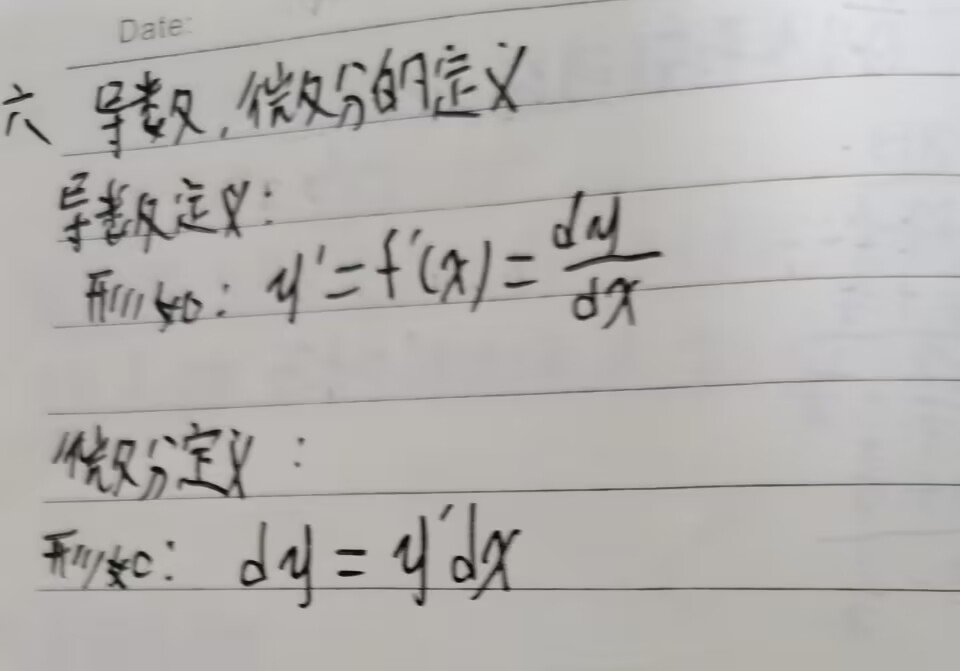 Date:
六 导数,微分的定义
导数定义:
形如: y'=f'(x)=dy/dx
微分定义:
形如: dy=y'dx